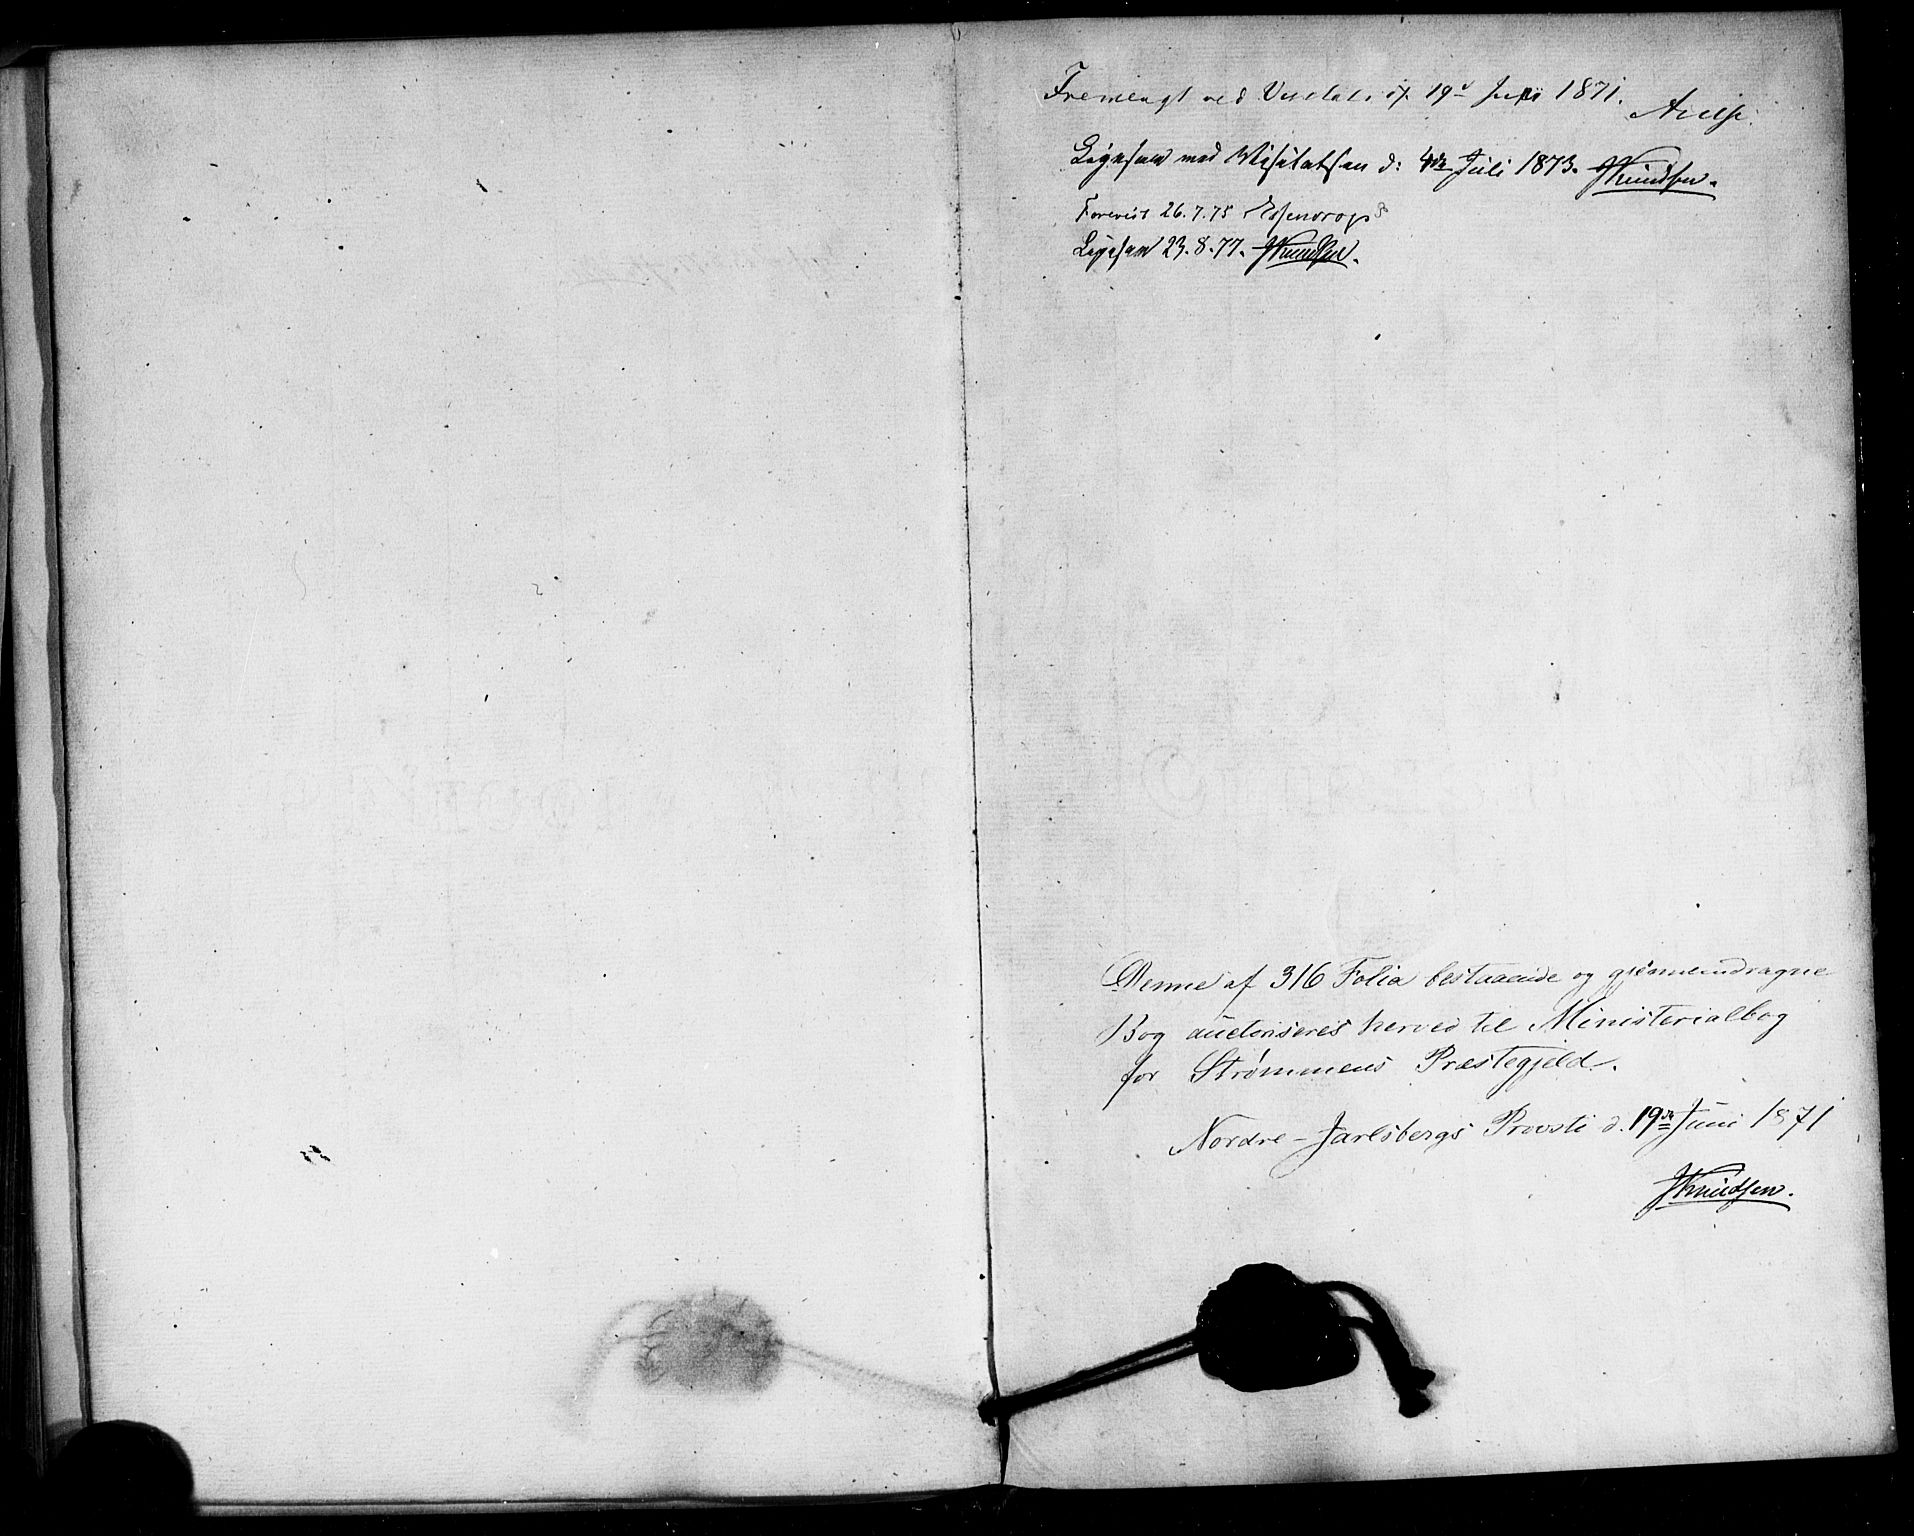 Fremlagt ved Visitats 19d Juni 1871.
Ligesaa ved Visitatsen d: 4de Juli 1873. JKnudsen.
Forevist 26.7.75 Essendrop
Ligesaa 23.8.77. JKnudsen.
Denne af 316 Folia bestaaende og gjennemdragne
Bog auctoriseres herved til Ministerialbog
for Strømmens Præstegjeld.
Nordre-Jarlsbergs Provsti d. 19de Juni 1871
JKnudsen.